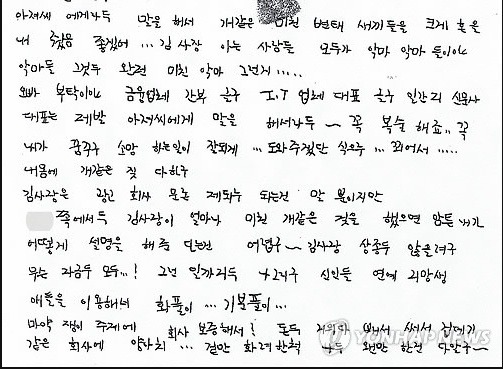 아저씨 에게라두 말을 해서 개같은 미친 변태 새끼들을 크게 혼을
내 줬음 좋겠어 ... 김사장 아는 사람들 모두가 악마 악마 들이야
악마들 그것두 완전 미친 악마 그런거 .....
오빠 부탁이야 금융업체 간부 친구 I.T 업체 대표 친구 일간지 신문사
대표는 제발 아저씨에게 말을 해서라두 ~ 꼭 복수 해죠.. 꼭
내가 꿈꾸구 소망 하는일이 잘되게 ... 도와주겠단 식으루 ... 꾀어서 .....
내몸에 개같은 짓 다하구
김사장은 광고 회사 문논 제의두 되는건 안 봉이지만
쪽에서두 김사장이 얼마나 미친 개같은 짓을 했으면 암튼 내가
어떻게 설명을 해 주 단는건 어렵구 ~ 김사장 상종두 않을려구
무슨 자금두 모두..! 그런 일까지두 나스러구 신인들 연예 지망생
애들을 이용해서 화풀이 ... 기분풀이 ...
마약 쟁이 주제에 회사 보증해서! 돈두 지외다 써서 껍데기
같은 회사에 양아치 ... 겉만 화려한척 나두 왠만 한건 다알구 ~
YONHAPNEWS